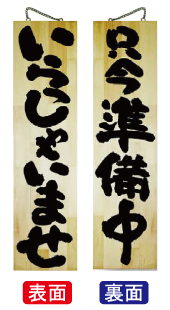 いらっしゃいませ
只今準備中
表面
裏面